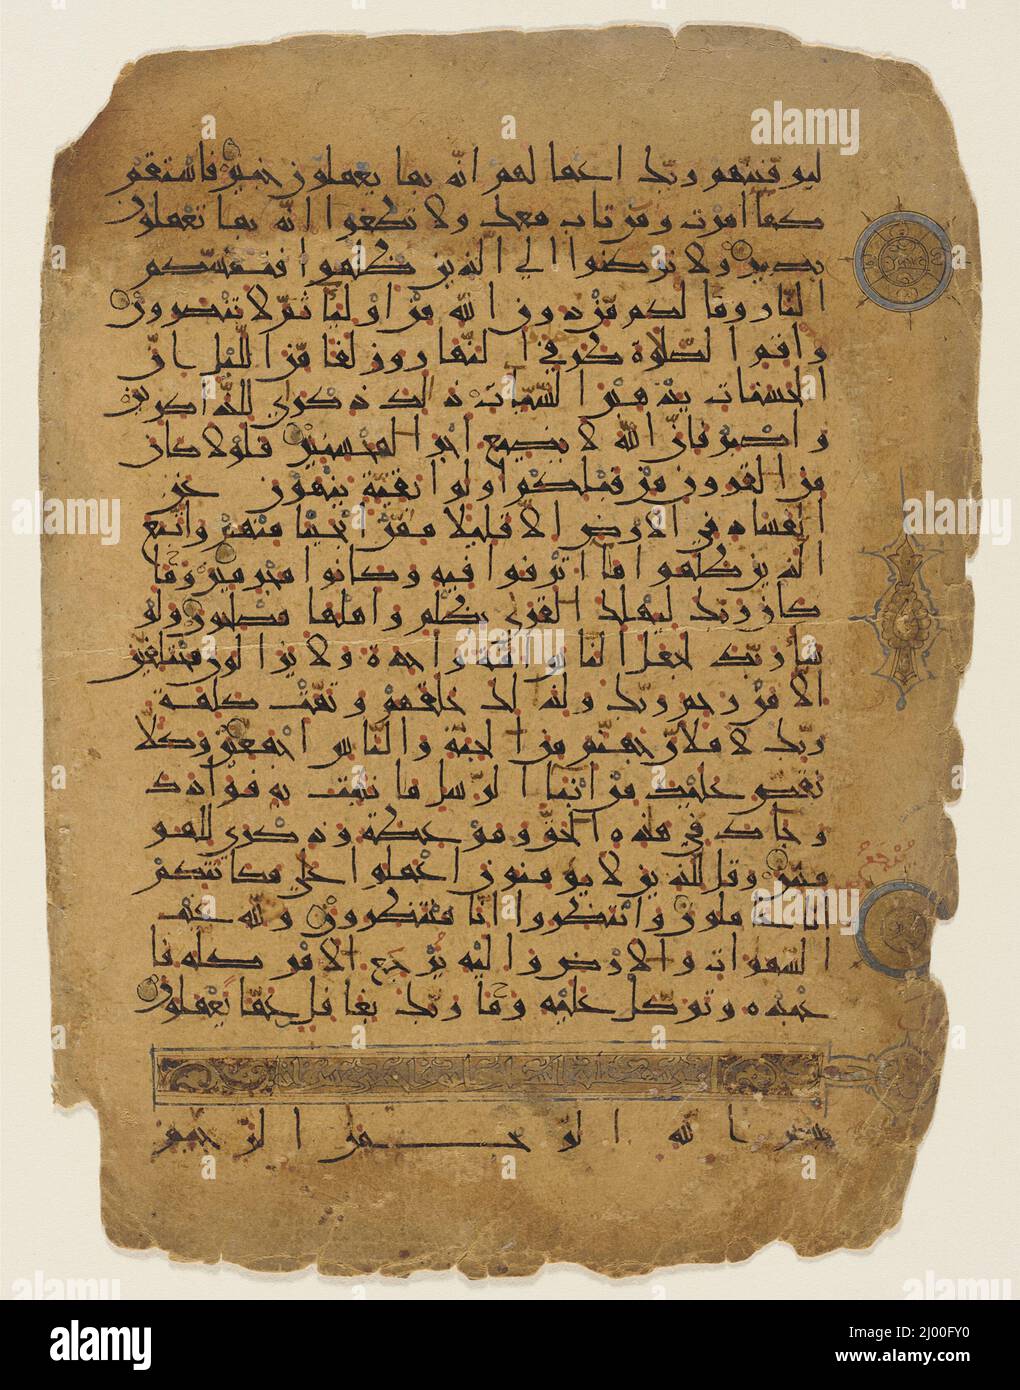 ليوفينهم ربك اعمالهم انه بما يعملون خبير فاستقم
كما امرت ومن تاب معك ولا تطغوا انه بما تعملون
بصير ولا تركنوا الى الذين ظلموا فتمسكم
النار وما لكم من دون الله من اوليا ثم لا تنصرون
واقم الصلاة طرفي النهار وزلفا من الليل ان
الحسنات يذهبن السيات ذلك ذكرى للذاكرين
واصبر فان الله لا يضيع اجر المحسنين فلولا كان
من القرون من قبلكم اولوا بقية ينهون عن
الفساد في الارض الا قليلا ممن انجينا منهم واتبع
الذين ظلموا ما اترفوا فيه وكانوا مجرمين وما
كان ربك ليهلك القرى بظلم واهلها مصلحون ولو
شا ربك لجعل الناس امة واحدة ولا يزالون مختلفين
الا من رحم ربك ولذلك خلقهم وتمت كلمة
ربك لاملان جهنم من الجنة والناس اجمعين وكلا
نقص عليك من انبا الرسل ما نثبت به فوادك
وجاك في هذه الحق وموعظة وذكرى للمو
منين وقل للذين لا يومنون اعملوا على مكانتكم
انا عاملون وانتظروا انا منتظرون ولله غيب
السموات والارض واليه يرجع الامر كله فا
عبده وتوكل عليه وما ربك بغافل عما يعملون
بسم الله الرحمن الرحيم
alamy
Image ID: 2J00FY0
www.alamy.com